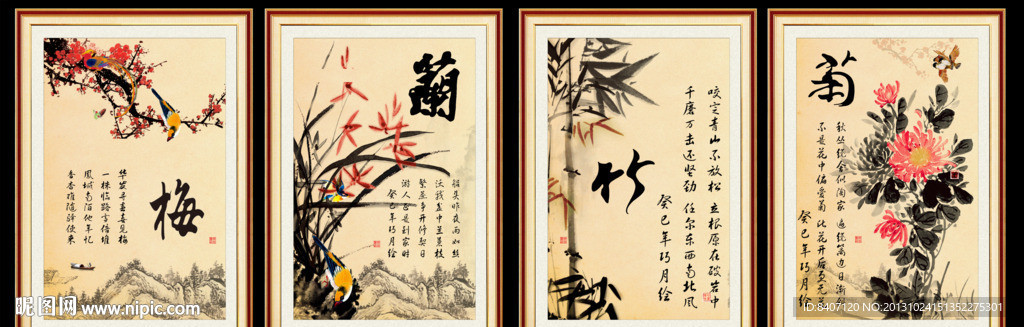 梅
华发寻春喜见梅
一株临路雪倍堆
凤城南陌他年忆
香杳难随驿使来
蘭
昨夜雨如丝
沃我庭中兰蕙枝
争开修禊日
游人忽是到家时
癸巳年巧月绘
竹
咬定青山不放松 立根原在破岩中
千磨万击还坚劲 任尔东西南北风
癸巳年巧月绘
菊
秋丛绕舍似陶家 遍绕篱边日渐
不是花中偏爱菊 此花开后更无
癸巳年巧月绘
昵图网 www.nipic.com
ID:8407120 NO:20131024151352275301